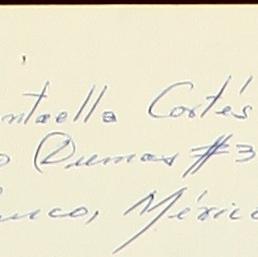 ntaella Cortés
o Dumas #3
co, México